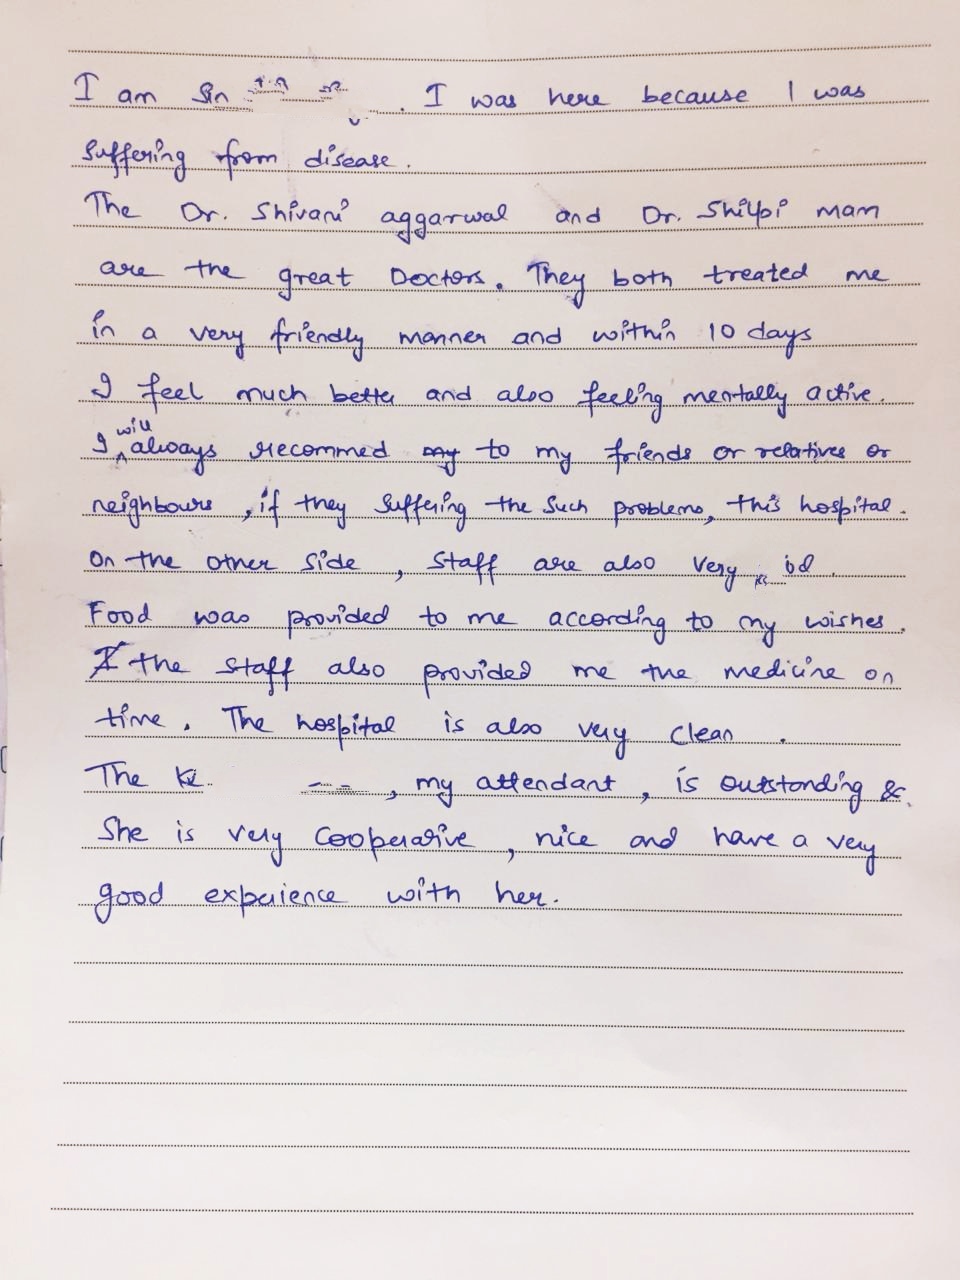 I am . I was here because I was
suffering from disease.
The Dr. Shivani aggarwal and Dr. Shilpi mam
are the great Doctors. They both treated me
in a very friendly manner and within 10 days
I feel much better and also feeling mentally active.
I will always recommed my to my friends or relatives or
neighbours, if they suffering the such problems, this hospital.
On the other side, staff are also very
Food was provided to me according to my wishes.
I the staff also provided me the medicine on
time. The hospital is also very clean.
The , my attendant, is outstanding &
She is very cooperative, nice and have a very
good experience with her.